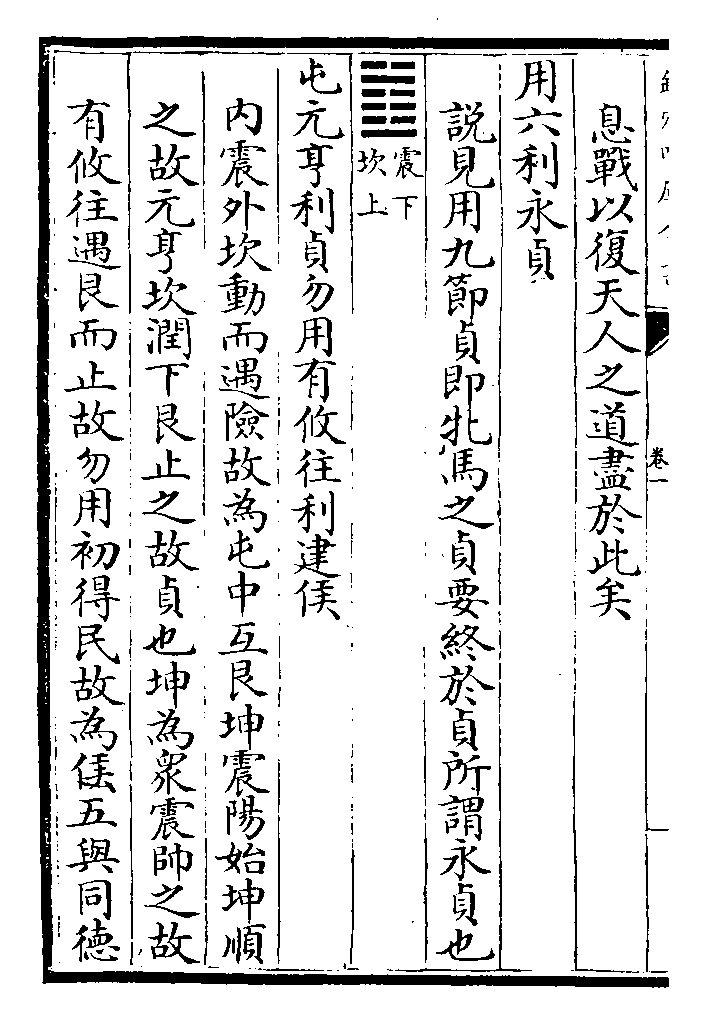 欽定四庫全書
卷一
息戰以復天人之道盡於此矣
用六利永貞
說見用九節貞即牝馬之貞要終於貞所謂永貞也
震下
坎上
屯元亨利貞勿用有攸往利建侯
內震外坎動而遇險故為屯中互艮坤震陽始坤順
之故元亨坎潤下艮止之故貞也坤為衆震帥之故
有攸往遇艮而止故勿用初得民故為侯五與同德